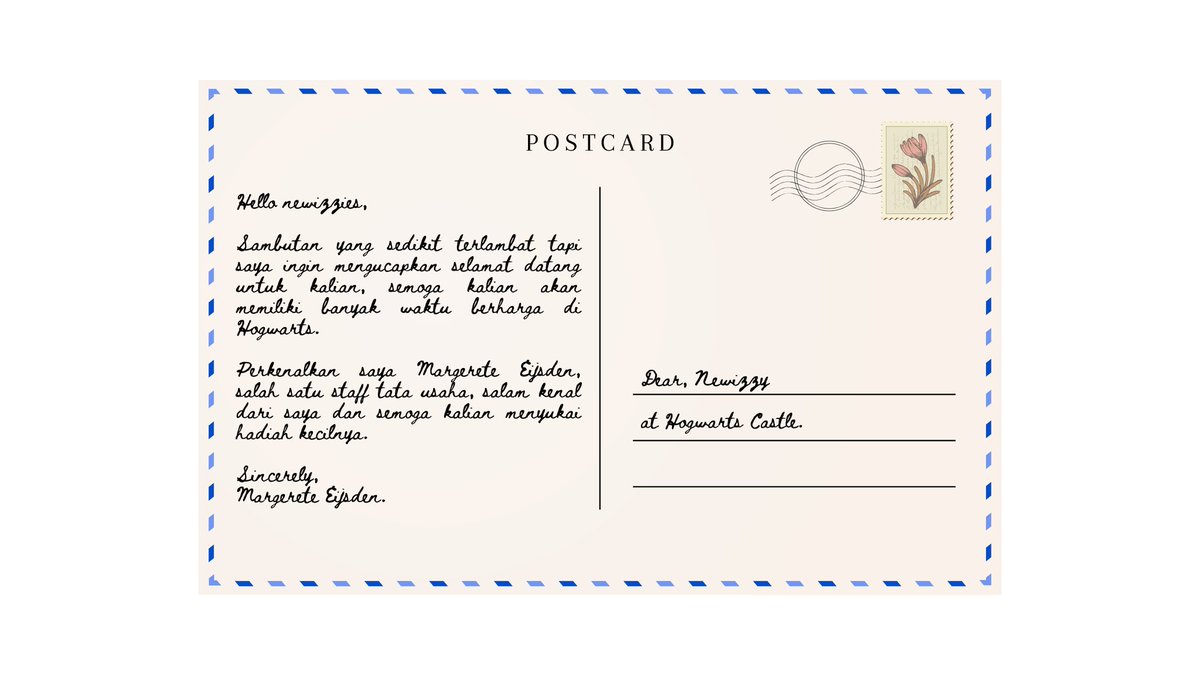 POSTCARD
Hello newizzies,
Sambutan yang sedikit terlambat tapi
saya ingin mengucapkan selamat datang
untuk kalian, semoga kalian akan
memiliki banyak waktu berharga di
Hogwarts.
Perkenalkan saya Margerete Eijsden,
salah satu staff tata usaha, salam kenal
dari saya dan semoga kalian menyukai
hadiah kecilnya.
Sincerely,
Margerete Eijsden.
Dear, Newizzy
at Hogwarts Castle.